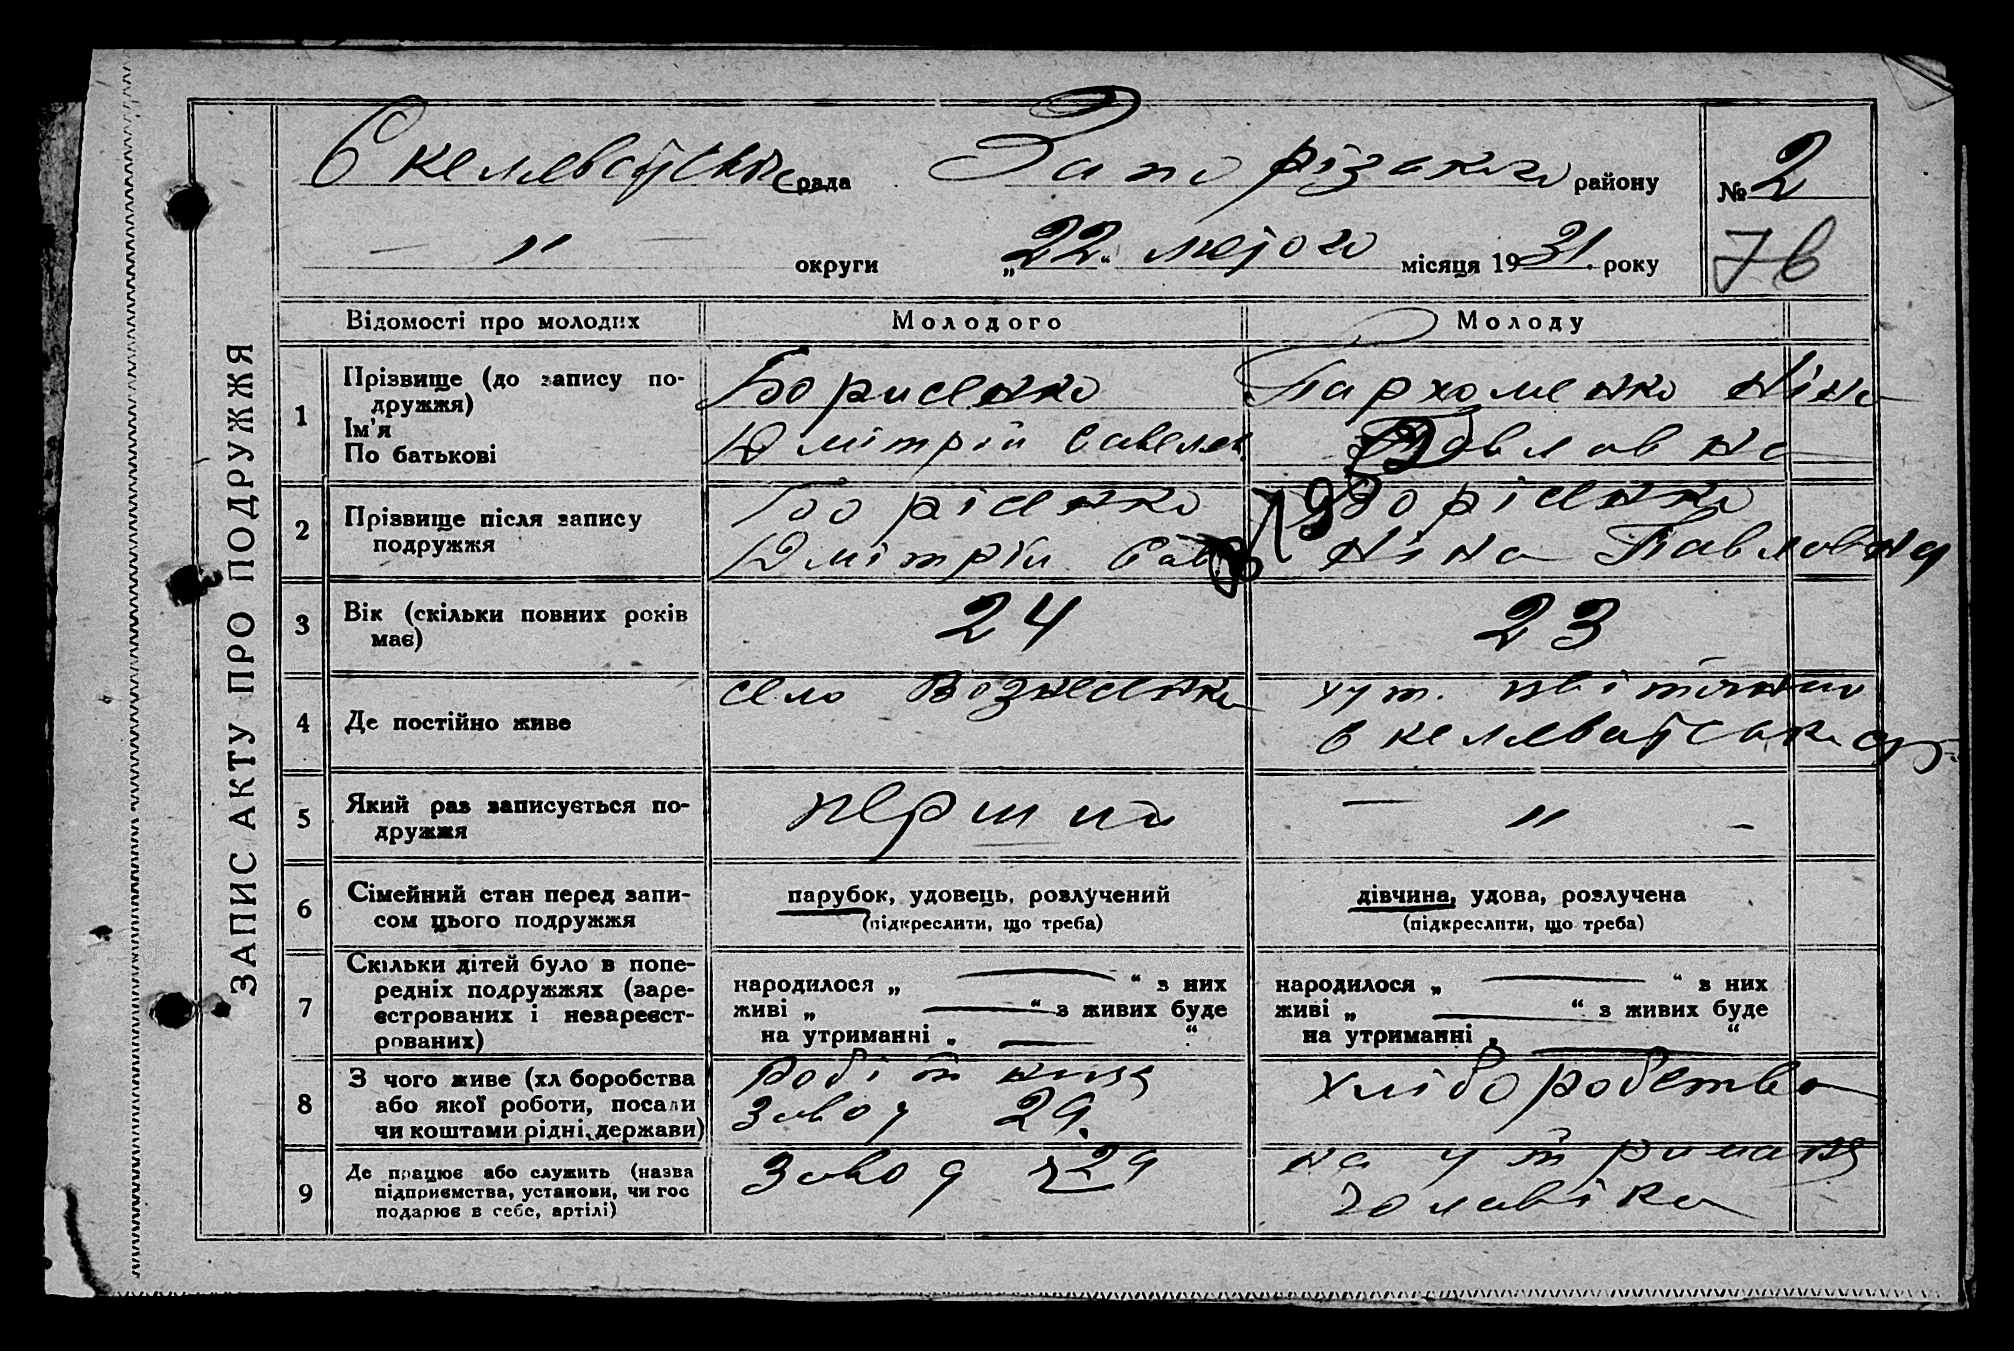 ЗАПИС АКТУ ПРО ПОДРУЖЖЯ
Скелеватська рада Запорізького району № 2
— " — округи „22“ лютого місяця 1931 року 76
Відомості про молодих Молодого Молоду
1 Прізвище (до запису подружжя) Борисенко Пархоменко Ніна
Ім'я
По батькові Дмітрій Савелев. Павловна
2 Прізвище після запису Борісенко Борісенко
подружжя Дмітрій Сав Ніна Павловна
3 Вік (скільки повних років має) 24 23
4 Де постійно живе село Вознесенка хут.
5 Який раз записується подружжя перший — " -
6 Сімейний стан перед записом цього подружжя
парубок, удовець, розлучений дівчина, удова, розлучена
(підкреслити, що треба) (підкреслити, що треба)
7 Скільки дітей було в попередніх подружжях (зареєстрованих і незареєстрованих)
народилося „ — “ з них народилося „ — “ з них
живі „ — “ з живих буде живі „ — “ з живих буде
на утриманні „ — “ на утриманні „ — “
8 З чого живе (хліборобства
або якої роботи, посади
чи коштами рідні, держави)
завод 29. хліборобство
9 Де працює або служить (назва
підприємства, установи, чи гос
подарює в себе, артілі)
Завод 29 на утриманя
чоловіка